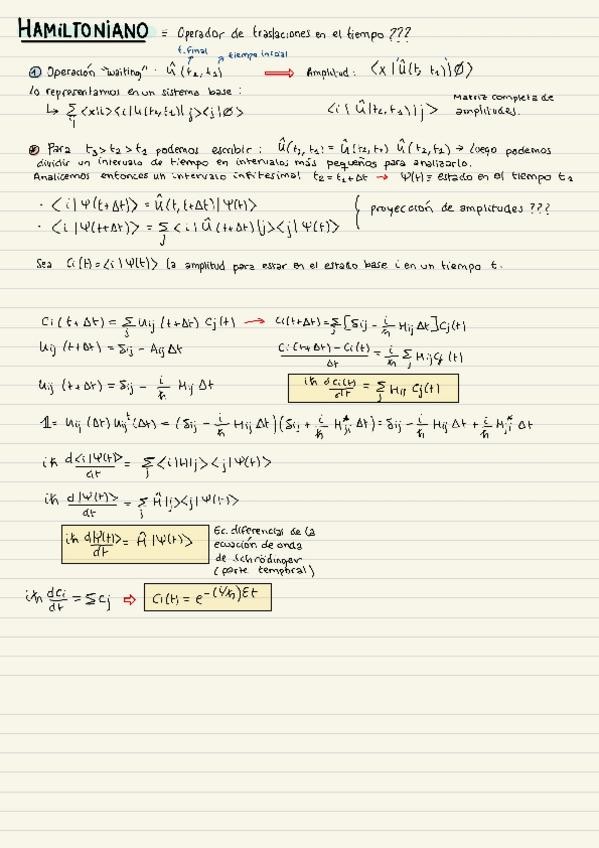 HAMILTONIANO = Operador de traslaciones en el tiempo ???
t. final tiempo inicial
① Operación "waiting" · Û(t₂, t₁) ⟹ Amplitud: ⟨χ|Û(t₂ t₁)|Ø⟩
lo representamos en un sistema base:
↳ Σ ⟨χ|i⟩⟨i|U(t₂,t₁)|j⟩⟨j|Ø⟩ ⟨i|Û(t₂,t₁)|j⟩ Matriz completa de amplitudes.
② Para t₃>t₂>t₁ podemos escribir: Û(t₃,t₁) = Û(t₃,t₂) Û(t₂,t₁) → Luego podemos
dividir un intervalo de tiempo en intervalos más pequeños para analizarlo.
Analicemos entonces un intervalo infitesimal t₂=t₁+Δt → Ψ(t)= estado en el tiempo t₁
· ⟨i|Ψ(t+Δt)⟩ = Û(t,t+Δt)|Ψ(t)⟩
· ⟨i|Ψ(t+Δt)⟩ = Σⱼ ⟨i|Û(t+Δt)|j⟩⟨j|Ψ(t)⟩ { proyección de amplitudes ???
Sea Ci(t)=⟨i|Ψ(t)⟩ la amplitud para estar en el estado base i en un tiempo t.
Ci(t+Δt) = Σⱼ Uij(t+Δt) Cj(t) → Ci(t+Δt)=Σⱼ[δij - i/ħ Hij Δt]Cj(t)
Uij(t+Δt) = δij - Aij Δt (Ci(t+Δt)-Ci(t))/Δt = i/ħ Σⱼ Hij Cj(t)
Uij(t+Δt) = δij - i/ħ Hij Δt iħ dCi(t)/dt = Σⱼ Hij Cj(t)
𝟙= Uij(Δt)Uij†(Δt) = (δij - i/ħ Hij Δt)(δij + i/ħ Hji* Δt) = δij - i/ħ Hij Δt + i/ħ Hji* Δt
iħ d⟨i|Ψ(t)⟩/dt = Σⱼ ⟨i|H|j⟩⟨j|Ψ(t)⟩
iħ d|Ψ(t)⟩/dt = Σⱼ Ĥ|j⟩⟨j|Ψ(t)⟩
iħ d|Ψ(t)⟩/dt = Ĥ|Ψ(t)⟩
Ec. diferencial de la
ecuación de onda
de Schrödinger
(parte temporal)
iħ dCi/dt = ΣCj ⇨ Ci(t) = e^-(i/ħ)Et